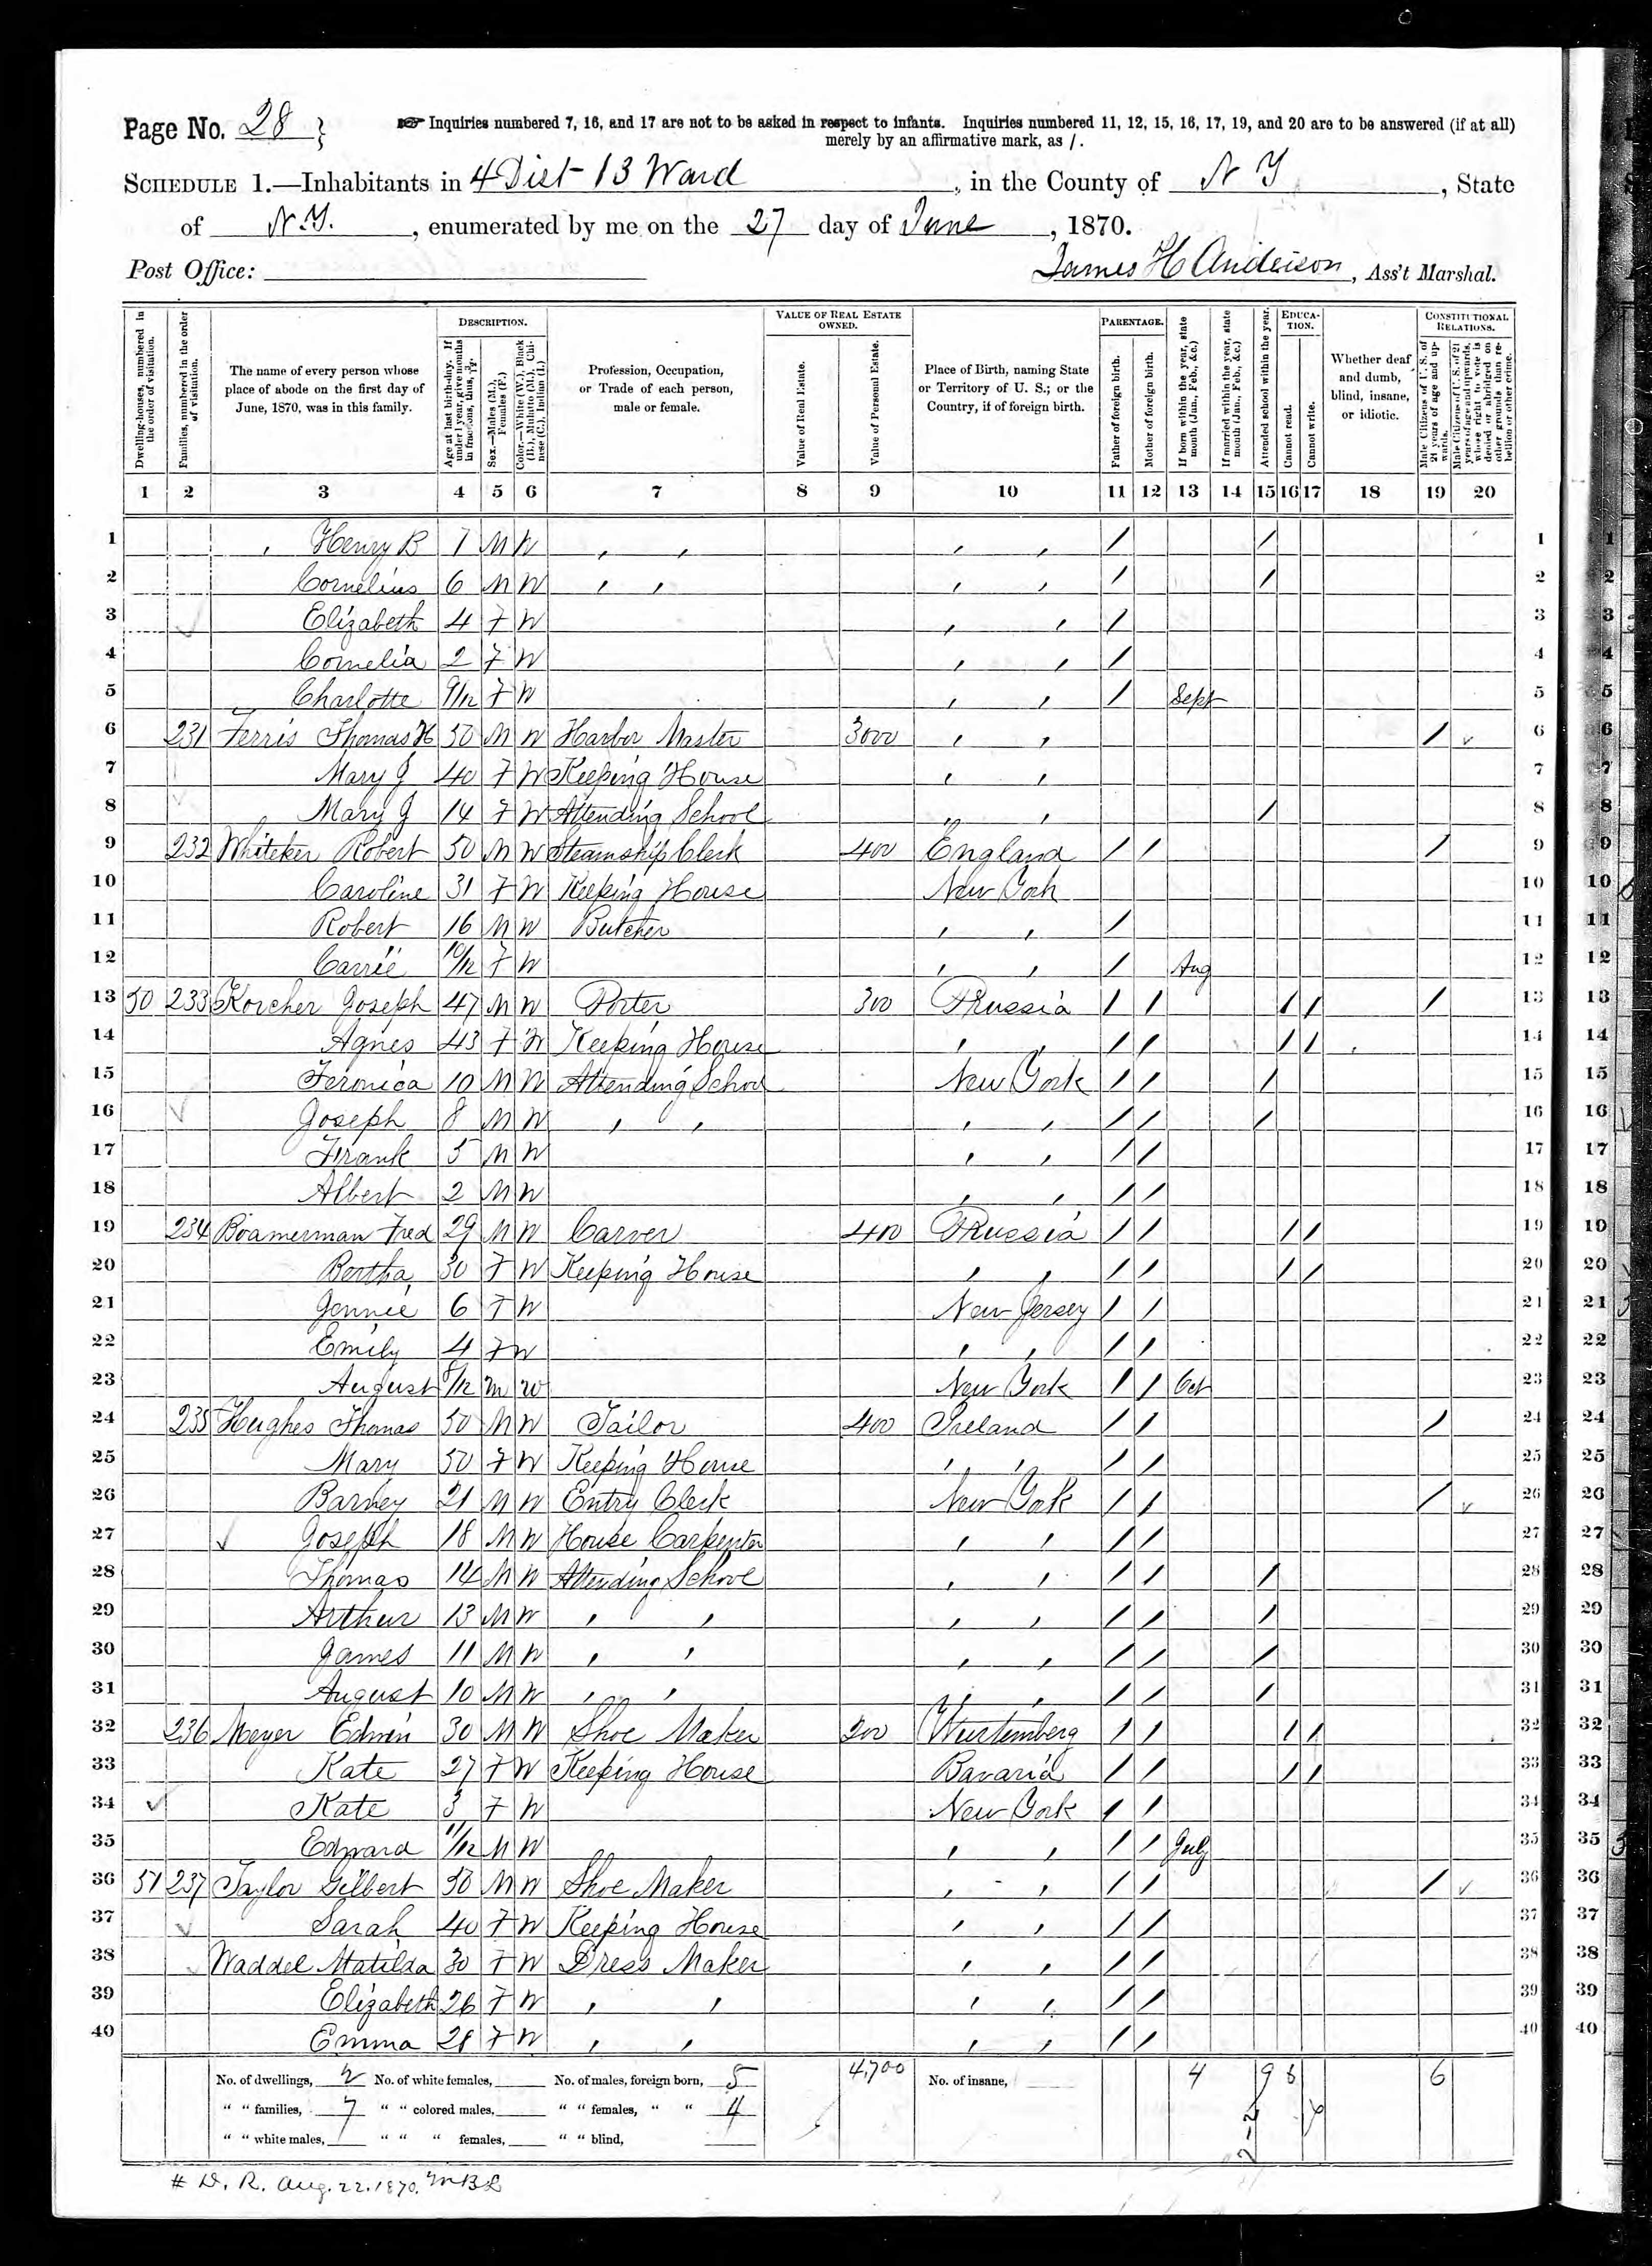 Page No. 28 } Inquiries numbered 7, 16, and 17 are not to be asked in respect to infants. Inquiries numbered 11, 12, 15, 16, 17, 19, and 20 are to be answered (if at all)
merely by an affirmative mark, as /.
SCHEDULE 1.—Inhabitants in 4 Dist 13 Ward, in the County of N Y, State
of N.Y., enumerated by me on the 27 day of June, 1870.
Post Office: James H Anderson, Ass't Marshal.
Dwelling-houses, numbered in the order of visitation.
Families, numbered in the order of visitation.
The name of every person whose place of abode on the first day of June, 1870, was in this family.
DESCRIPTION.
Age at last birth-day. If under 1 year, give months in fractions, thus, 3/12.
Sex.—Males (M.), Females (F.)
Color.—White (W.), Black (B.), Mulatto (M.), Chinese (C.), Indian (I.)
Profession, Occupation, or Trade of each person, male or female.
VALUE OF REAL ESTATE OWNED.
Value of Real Estate.
Value of Personal Estate.
Place of Birth, naming State or Territory of U. S.; or the Country, if of foreign birth.
PARENTAGE.
Father of foreign birth.
Mother of foreign birth.
If born within the year, state month (Jan., Feb., &c.)
If married within the year, state month (Jan., Feb., &c.)
Attended school within the year.
EDUCATION.
Cannot read.
Cannot write.
Whether deaf and dumb, blind, insane, or idiotic.
CONSTITUTIONAL RELATIONS.
Male Citizens of U. S. of 21 years of age and upwards.
Male Citizens of U. S. of 21 years of age and upwards, whose right to vote is denied or abridged on other grounds than rebellion or other crime.
1 2 3 4 5 6 7 8 9 10 11 12 13 14 15 16 17 18 19 20
1 , Henry B 7 M W , , , , / / 1
2 Cornelius 6 M W , , , , / / 2
3 Elizabeth 4 F W , , / 3
4 Cornelia 2 F W , , / 4
5 Charlotte 9/12 F W , , / Sept 5
6 231 Ferris Thomas H 50 M W Harbor Master 3000 , , / 6
7 Mary J 40 F W Keeping House , , 7
8 Mary J 14 F W Attending School , , / 8
9 232 Whiteker Robert 50 M W Steamship Clerk 400 England / / / 9
10 Caroline 31 F W Keeping House New York 10
11 Robert 16 M W Butcher , , / 11
12 Carrie 10/12 F W , , / Aug 12
13 50 233 Korcher Joseph 47 M W Porter 300 Prussia / / / / / 13
14 Agnes 43 F W Keeping House , , / / / / 14
15 Feronica 10 M W Attending School New York / / / 15
16 Joseph 8 M W , , , , / / / 16
17 Frank 5 M W , , / / 17
18 Albert 2 M W , , / / 18
19 234 Boamerman Fred 29 M W Carver 400 Prussia / / / / 19
20 Bertha 30 F W Keeping House , , / / / / 20
21 Jennie 6 F W New Jersey / / 21
22 Emily 4 F W , , / / 22
23 August 8/12 M W New York / / Oct 23
24 235 Hughes Thomas 50 M W Tailor 400 Ireland / / / 24
25 Mary 50 F W Keeping House , , / / 25
26 Barney 21 M W Entry Clerk New York / / / 26
27 Joseph 18 M W House Carpenter , , / / 27
28 Thomas 14 M W Attending School , , / / / 28
29 Arthur 13 M W , , , , / / / 29
30 James 11 M W , , , , / / / 30
31 August 10 M W , , , , / / / 31
32 236 Meyer Edwin 30 M W Shoe Maker 200 Wurtemberg / / / / 32
33 Kate 27 F W Keeping House Bavaria / / / / 33
34 Kate 3 F W New York / / 34
35 Edward 11/12 M W , , / / July 35
36 51 237 Taylor Gilbert 50 M W Shoe Maker , , / / / 36
37 Sarah 40 F W Keeping House , , / / 37
38 Waddel Matilda 30 F W Dress Maker , , / / 38
39 Elizabeth 26 F W , , , , / / 39
40 Emma 28 F W , , , , / / 40
No. of dwellings, 2 No. of white females, No. of males, foreign born, 5 4,700 No. of insane, 4 9 6
" " families, 7 " " colored males, " " females, " " 4
" " white males, " " " females, " " blind,
# D. R. Aug. 22. 1870.